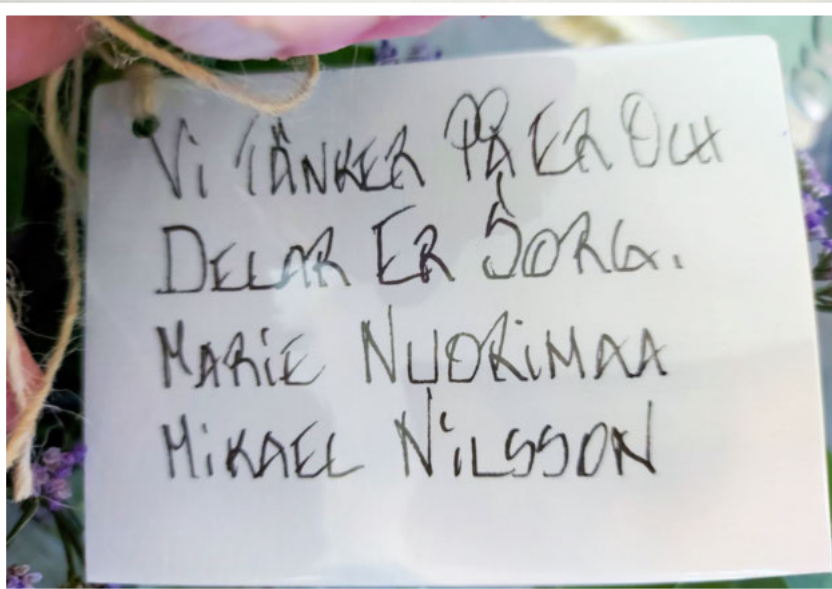 Vi TÄNKER PÅ ER OCH
DELAR ER SORG.
MARiE NUORiMAA
MiKAEL NiLSSON